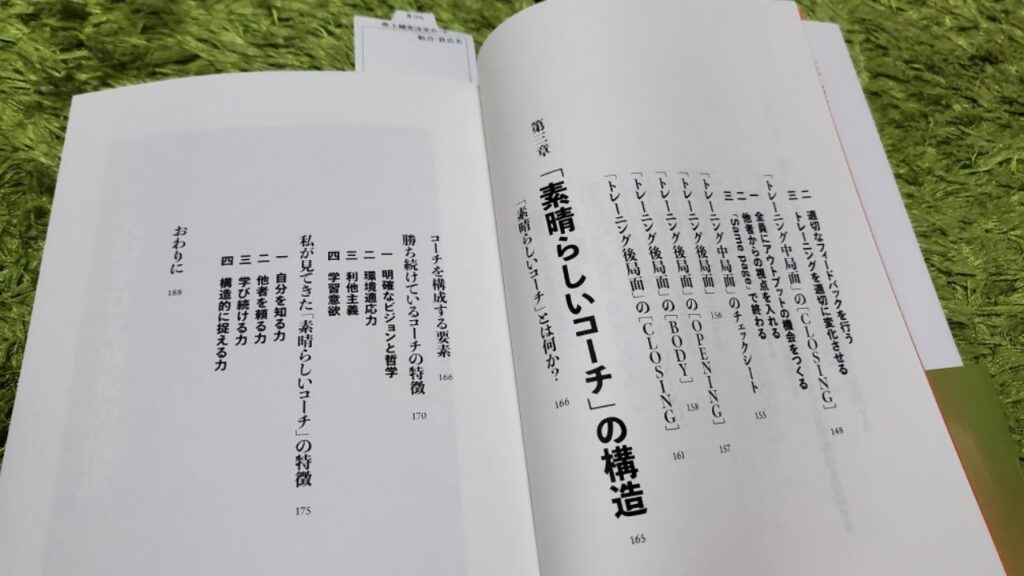 二 適切なフィードバックを行う
三 トレーニングを適切に変化させる
「トレーニング中局面」の[CLOSING] 148
一 全員にアウトプットの機会をつくる
二 他者からの視点を入れる
三 「Same page」で終わる
「トレーニング中局面」のチェックシート 155
「トレーニング後局面」 156
「トレーニング後局面」の[OPENING] 157
「トレーニング後局面」の[BODY] 158
「トレーニング後局面」の[CLOSING] 161
第三章 「素晴らしいコーチ」の構造 165
「素晴らしいコーチ」とは何か? 166
コーチを構成する要素 166
勝ち続けているコーチの特徴 170
一 明確なビジョンと哲学
二 環境適応力
三 利他主義
四 学習意欲
私が見てきた「素晴らしいコーチ」の特徴 175
一 自分を知る力
二 他者を頼る力
三 学び続ける力
四 構造的に捉える力
おわりに 188